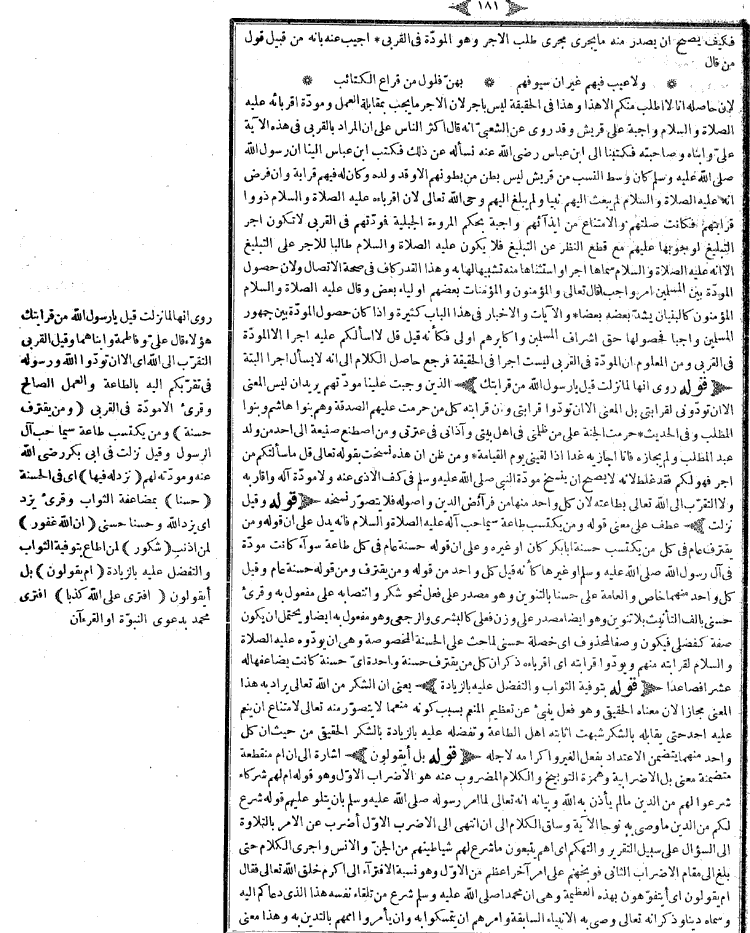 ١٨١
فكيف يصح ان يصدر منه مايجرى مجرى طلب الاجر وهو المودّة فى القربى * اجيب عنه بانه من قبيل قول
من قال
ولا عيب فيهم غيران سيوفهم * بهنّ فلول من قراع الكتائب
لان حاصله انا لااطلب منكم الاهذا وهذا فى الحقيقة ليس باجر لان الاجر مايجب بمقابلة العمل ومودّة اقربائه عليه
الصلاة و السلام واجبة على قريش وقد روى عن الشعبىّ انه قال اكثر الناس على ان المراد بالقربى فى هذه الآية
علىّ وابناه وصاحبته فكتبنا الى ابن عباس رضى الله عنه نسأله عن ذلك فكتب ابن عباس الينا ان رسول الله
صلى الله عليه وسلم كان وسط النسب من قريش ليس بطن من بطونهم الاوقد ولده وكان له فيهم قرابة وان فرض
انه عليه الصلاة و السلام لم يبعث اليهم نبيا ولم يبلغ اليهم وحى الله تعالى لان اقرباءه عليه الصلاة و السلام ذووا
قرابتهم فكانت صلتهم والامتناع من ايذآئهم واجبة بحكم المروءة الجبلية فمودّتهم فى القربى لاتكون اجر
التبليغ لوجوبها عليهم مع قطع النظر عن التبليغ فلا يكون عليه الصلاة و السلام طالبا للاجر على التبليغ
الاانه عليه الصلاة و السلام سماها اجرا واستثناها منه تشبيها لها به وهذا القدر كاف فى صحة الاتصال ولان حصول
المودّة بين المسلمين امر واجب لقال تعالى والمؤمنون و المؤمنات بعضهم اولياء بعض وقال عليه الصلاة و السلام
المؤمنون كالبنيان يشدّ بعضه بعضا * والآيات و الاخبار فى هذا الباب كثيرة واذا كان حصول المودّة بين جمهور
المسلمين واجبا فحصولها حق اشراف المسلمين واكابرهم اولى فكأنه قيل قل لااسألكم عليه اجرا الاالمودّة
فى القربى و من المعلوم ان المودّة فى القربى ليست اجرا فى الحقيقة فرجع حاصل الكلام الى انه لايسأل اجرا البتة
قوله روى انها لما نزلت قيل يارسول الله من قرابتك الذين وجبت علينا مودّتهم يريد ان ليس المعنى
الاان تودّونى لقرابتى بل المعنى الاان تودّوا قرابتى وان قرابته كل من حرمت عليهم الصدقة وهم بنوا هاشم وبنوا
المطلب وفى الحديث * حرمت الجنة على من ظلمنى فى اهل بيتى وآذانى فى عترتى ومن اصطنع صنيعة الى احد من ولد
عبد المطلب ولم يجازه فانا اجازيه غدا اذا لقينى يوم القيامة * ومن ظن ان هذه نسخت بقوله تعالى قل ماسألتكم من
اجر فهو لكم فقد غلط لانه لايصح ان ينسخ مودّة النبى صلى الله عليه وسلم فى كف الاذى عنه ولامودّة آله واقاربه
ولا التقرب الى الله تعالى بطاعته لان كل واحد منها من فرآئض الدين واصوله فلا يتصوّر نسخه قوله وقيل
نزلت عطف على معنى قوله ومن يكتسب طاعة سيما حب آله عليه الصلاة و السلام فانه يدل على ان قوله ومن
يقترف عام فى كل من يكتسب حسنة ابابكر كان او غيره وعلى ان قوله حسنة عام فى كل طاعة سوآء كانت مودّة
فى آل رسول الله صلى الله عليه وسلم او غيرها كأنه قيل كل واحد من قوله ومن يقترف ومن قوله حسنة عام وقيل
كل واحد منهما خاص والعامة على حسنا بالتنوين وهو مصدر على فعل نحو شكر وانتصابه على مفعول به وقرئ
حسنى بالف التأنيث بلاتنوين وهو ايضا مصدر على وزن فعلى كالبشرى والرجعى وهو مفعول به ايضا ويحتمل ان يكون
صفة كفضلى فيكون وصفا لمحذوف اى خصلة حسنى لماحث على الحسنة المخصوصة وهى ان يودّوه عليه الصلاة
و السلام لقرابته منهم و يودّوا قرابته اى اقرباءه ذكر ان كل من يقترف حسنة واحدة اىّ حسنة كانت يضاعفها له
عشرا فصاعدا قوله بتوفية الثواب و التفضل عليه بالزيادة يعنى ان الشكر من الله تعالى يراد به هذا
المعنى مجازا لان معناه الحقيقى وهو فعل ينبئ عن تعظيم المنعم بسبب كونه منعما لايتصوّر منه تعالى لامتناع ان ينعم
عليه احد حتى يقابله بالشكر شبهت اثابته اهل الطاعة وتفضله عليه بالزيادة بالشكر الحقيقى من حيث ان كل
واحد منهما يتضمن الاعتداد بفعل الغير واكرامه لاجله قوله بل أيقولون اشارة الى ان ام منقطعة
متضمنة معنى بل الاضرابية وهمزة التوبيخ و الكلام المضروب عنه هو الاضراب الاوّل وهو قوله ام لهم شركاء
شرعوا لهم من الدين مالم يأذن به الله وبيانه انه تعالى لما امر رسوله صلى الله عليه وسلم بان يتلو عليهم قوله شرع
لكم من الدين ماوصى به نوحا الآية وساق الكلام الى ان انتهى الى الاضرب الاوّل أضرب عن الامر بالتلاوة
الى السؤال على سبيل التقرير و التهكم اى اهم يتبعون ماشرع لهم شياطينهم من الجنّ والانس واجرى الكلام حتى
بلغ الى مقام الاضراب الثانى فوبخهم على امر آخر اعظم من الاوّل وهو نسبة الافترآء الى اكرم خلق الله تعالى فقال
ام يقولون اى أيتفوّهون بهذه العظيمة وهى ان محمدا صلى الله عليه وسلم شرع من تلقاء نفسه هذا الذى دعاكم اليه
وسماه دينا وذكر انه تعالى وصى به الانبياء السابقة وامرهم ان يتمسكوا به وان يأمروا اممهم بالتدين به وهذا معنى
روى انها لما نزلت قيل يارسول الله من قرابتك
هؤلاء قال علىّ و فاطمة وابناهما وقيل القربى
التقرّب الى الله اى الاان تودّوا الله ورسوله
فى تقرّبكم اليه بالطاعة والعمل الصالح
وقرئ الامودّة فى القربى ( ومن يقترف
حسنة ) ومن يكتسب طاعة سيما حب آل
الرسول وقيل نزلت فى ابى بكر رضى الله
عنه ومودّته لهم ( نزد له فيها ) اى فى الحسنة
( حسنا ) بمضاعفة الثواب وقرئ يزد
اى يزد الله وحسنا حسنى ( ان الله غفور )
لمن اذنب ( شكور ) لمن اطاع بتوفية الثواب
و التفضل عليه بالزيادة ( ام يقولون ) بل
أيقولون ( افترى على الله كذبا ) افترى
محمد بدعوى النبوّة او القرءآن